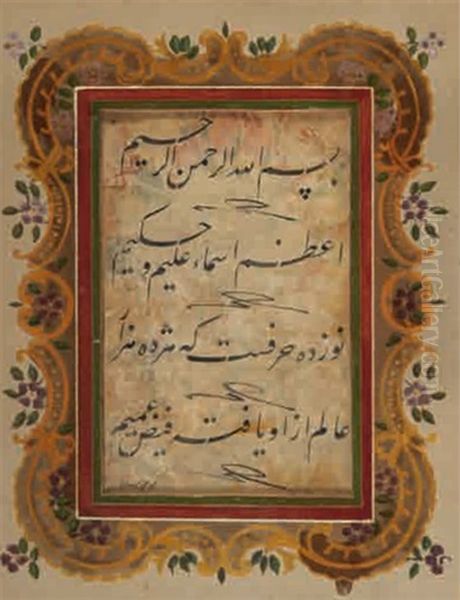 بسم الله الرحمن الرحیم
اعظم اسماء علیم و حکیم
نوزده حرفست که هژده هزار
عالم از او یافت فیض عمیم